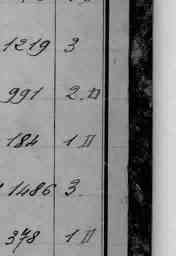 1219 3
991 2.
184 1 II
1486 3
378 1 II